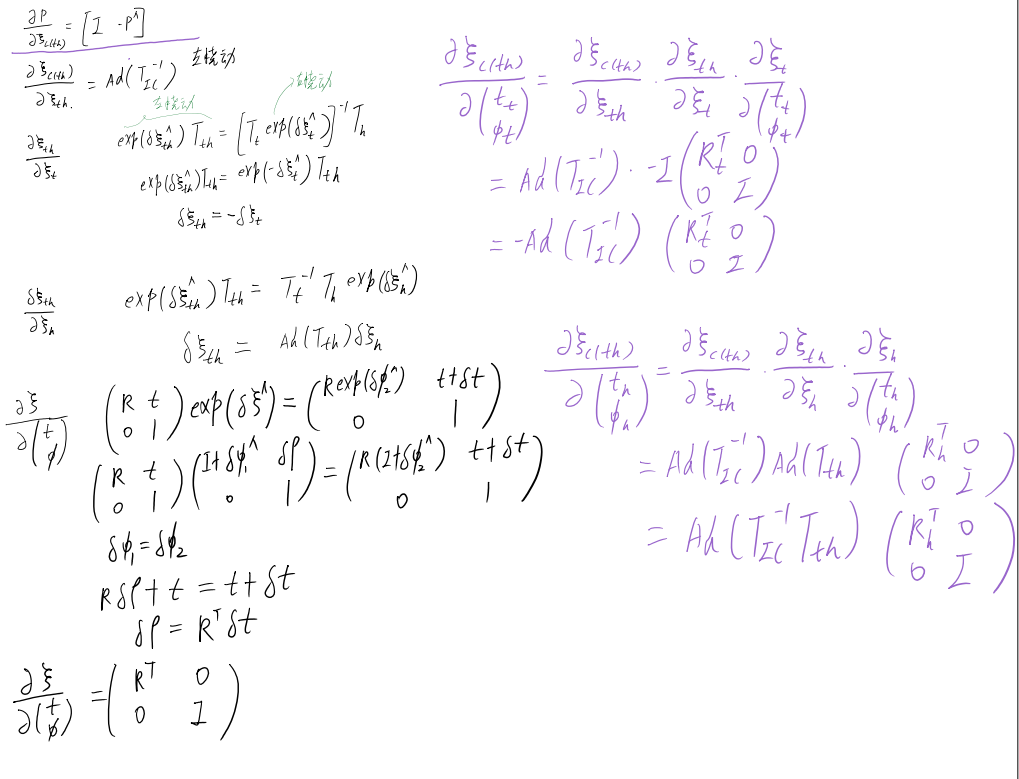 ∂P/∂ξ_{c(th)} = [I -P^∧]
∂ξ_{c(th)}/∂ξ_{th} = Ad(T_{IC}^{-1}) 左扰动
左扰动 左扰动
∂ξ_{th}/∂ξ_t exp(δξ_{th}^∧) T_{th} = [T_t exp(δξ_t^∧)]^{-1} T_h
exp(δξ_{th}^∧) T_{th} = exp(-δξ_t^∧) T_{th}
δξ_{th} = -δξ_t
δξ_{th}/∂ξ_h exp(δξ_{th}^∧) T_{th} = T_t^{-1} T_h exp(δξ_h^∧)
δξ_{th} = Ad(T_{th}) δξ_h
∂ξ/∂(t ϕ) (R t; 0 1) exp(δξ^∧) = (R exp(δϕ_2^∧) t+δt; 0 1)
(R t; 0 1) (I+δϕ_1^∧ δρ; 0 1) = (R(I+δϕ_2^∧) t+δt; 0 1)
δϕ_1 = δϕ_2
Rδρ + t = t + δt
δρ = R^T δt
∂ξ/∂(t ϕ) = (R^T 0; 0 I)
∂ξ_{c(th)}/∂(t_t ϕ_t) = ∂ξ_{c(th)}/∂ξ_{th} · ∂ξ_{th}/∂ξ_t · ∂ξ_t/∂(t_t ϕ_t)
= Ad(T_{IC}^{-1}) · -I (R_t^T 0; 0 I)
= -Ad(T_{IC}^{-1}) (R_t^T 0; 0 I)
∂ξ_{c(th)}/∂(t_h ϕ_h) = ∂ξ_{c(th)}/∂ξ_{th} · ∂ξ_{th}/∂ξ_h · ∂ξ_h/∂(t_h ϕ_h)
= Ad(T_{IC}^{-1}) Ad(T_{th}) (R_h^T 0; 0 I)
= Ad(T_{IC}^{-1} T_{th}) (R_h^T 0; 0 I)